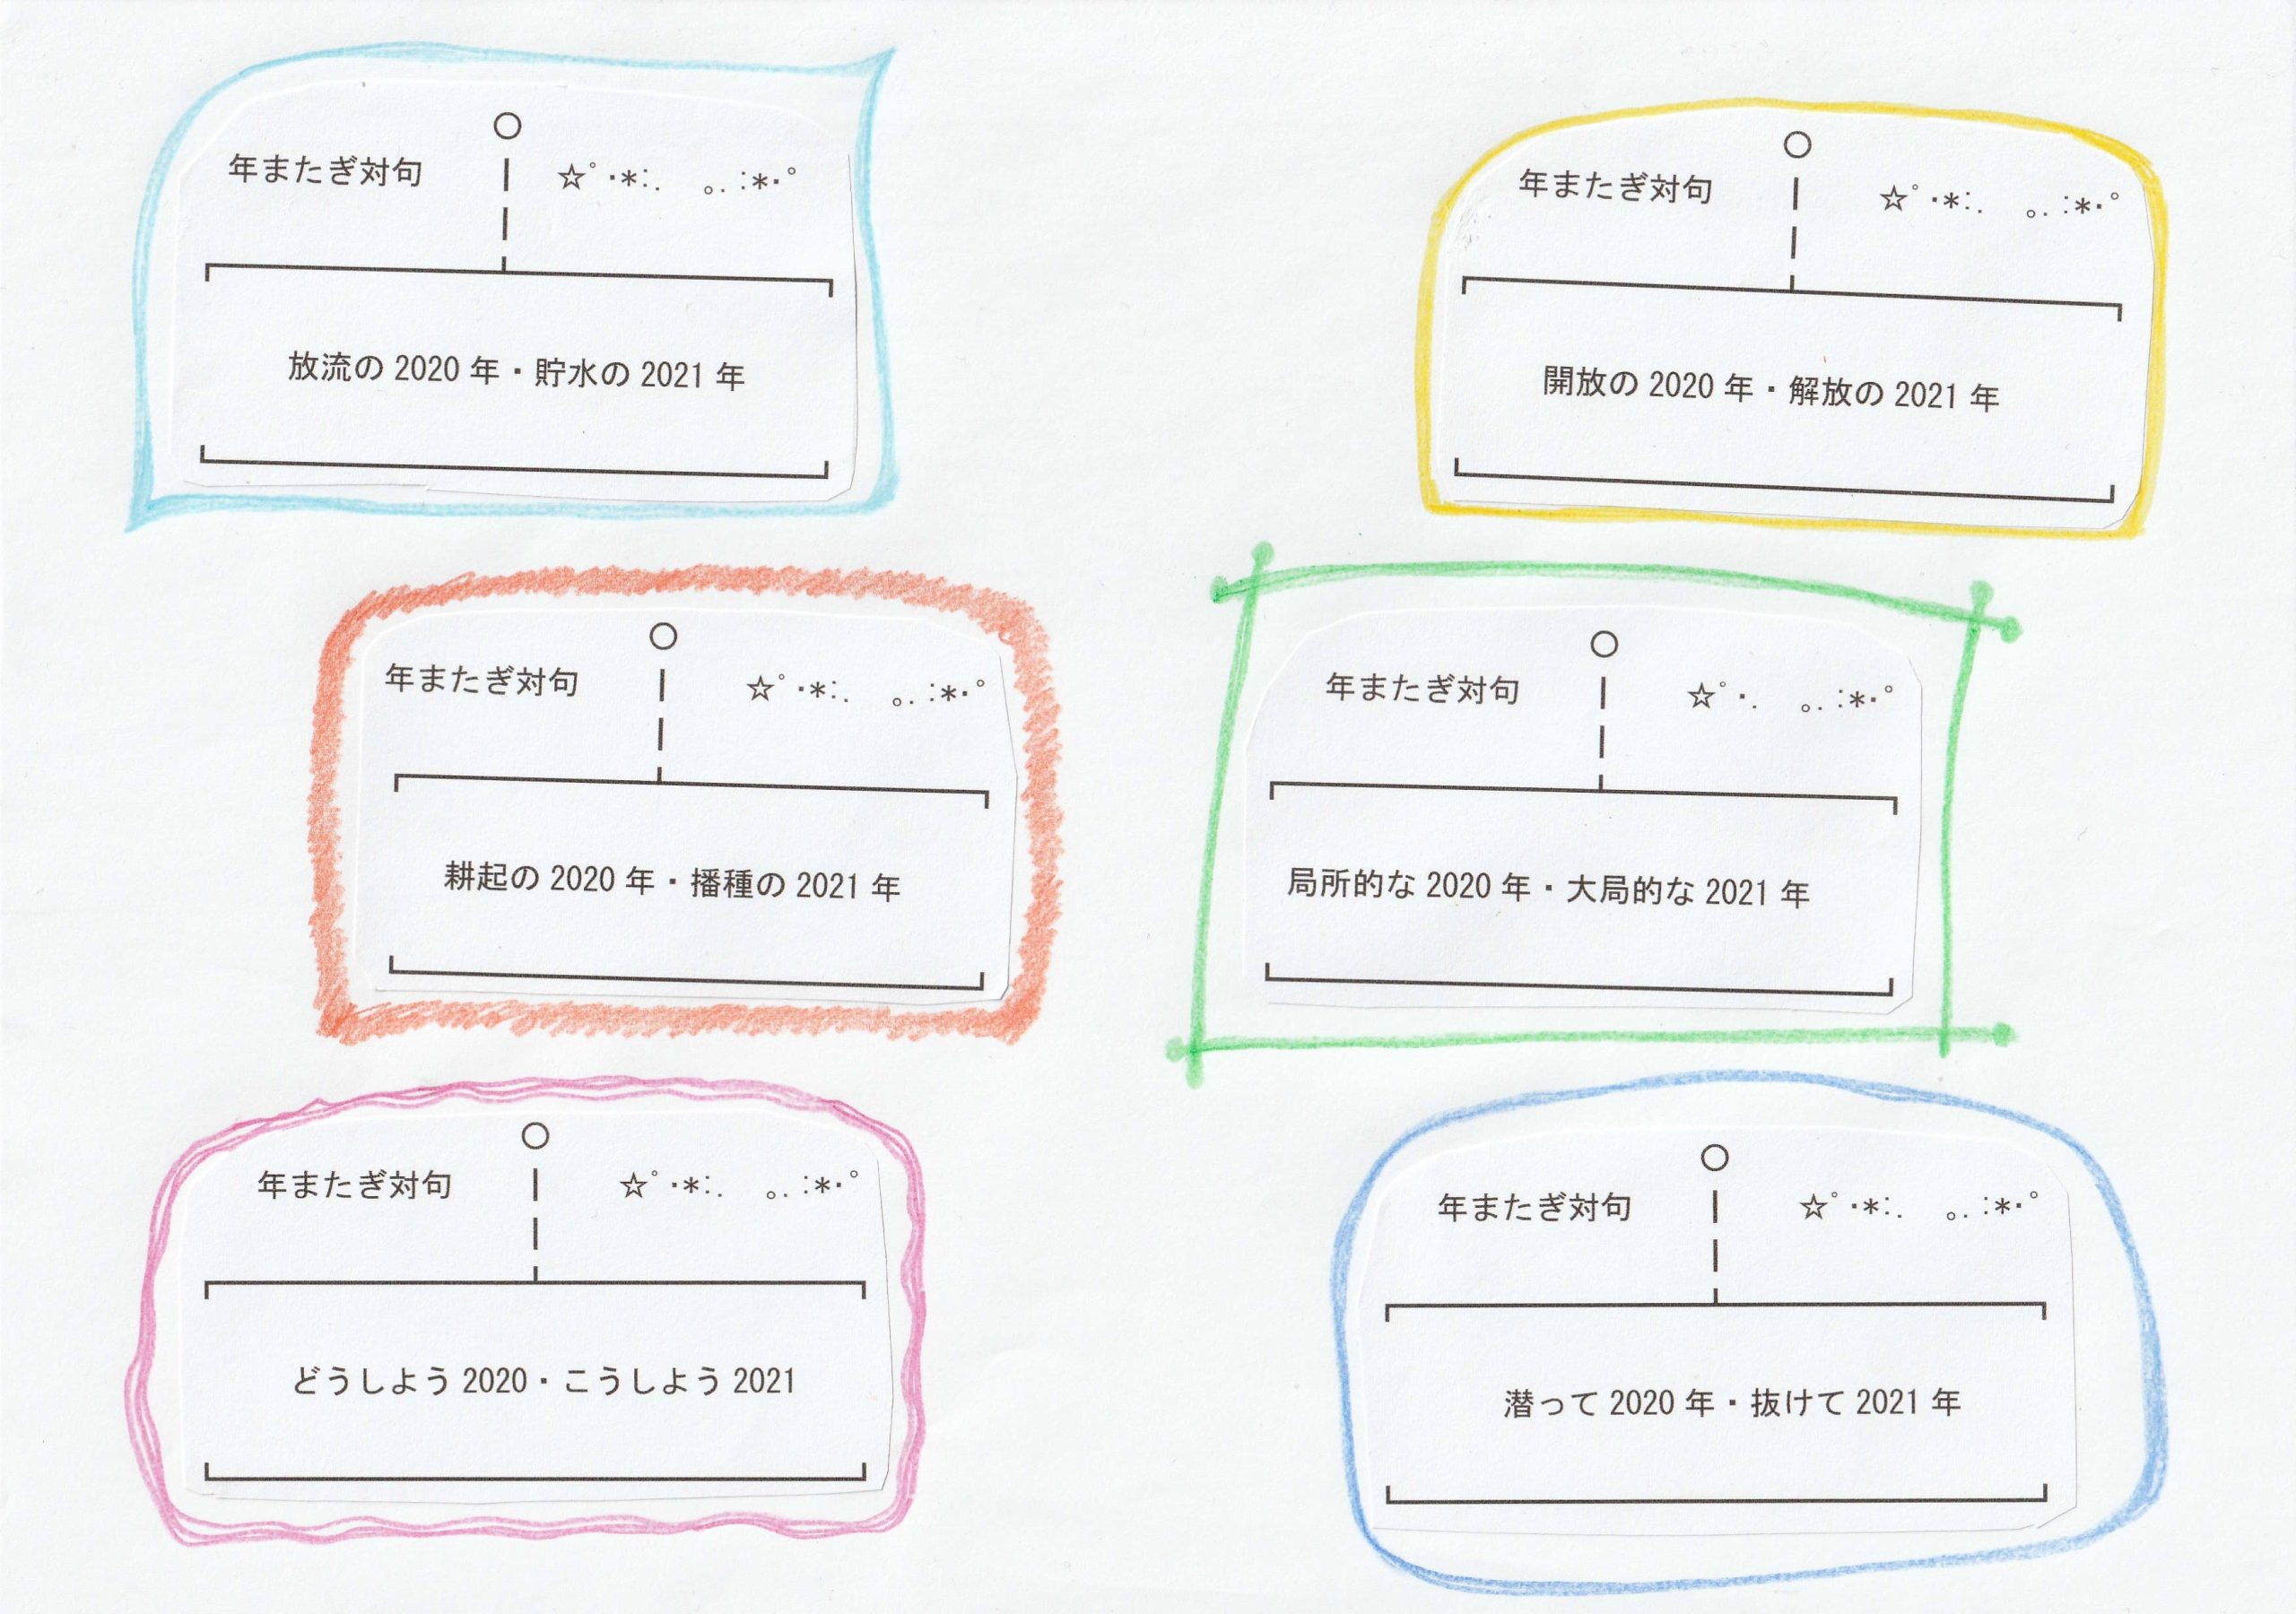 年またぎ対句 ☆゚・*:. 。.:*・゜
放流の 2020 年・貯水の 2021 年
年またぎ対句 ☆゚・*:. 。.:*・゜
開放の 2020 年・解放の 2021 年
年またぎ対句 ☆゚・*:. 。.:*・゜
耕起の 2020 年・播種の 2021 年
年またぎ対句 ☆゚・. 。.:*・゜
局所的な 2020 年・大局的な 2021 年
年またぎ対句 ☆゚・*:. 。.:*・゜
どうしよう 2020・こうしよう 2021
年またぎ対句 ☆゚・*:. 。.:*・゜
潜って 2020 年・抜けて 2021 年